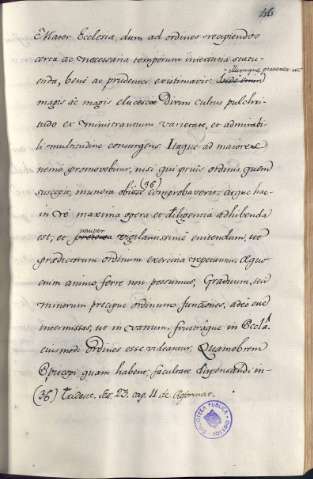 46
Mater Ecclesia, dum ad ordines recipiendos
certa ac necessaria temporum intervalla statu-
illumque presertim ut
enda, bene ac prudenter existimavit
magis ac magis elucescat Divini cultus pulchri-
tudo ex ministrantium varietate, et admirabi-
li multitudine convergens. Itaque ad maiores
nemo promovebitur, nisi qui prius ordinis quem
suscepit, munera obisse (36) comprobaverit: atque hac
in re maxima opera et diligentia adhibenda
est, et regularissime enitendum, ut
praedictorum ordinum exercitia repetantur. Aequo
enim animo ferre non possumus, Graduum, seu
minorum precipue ordinum functiones, adeo eve
intermissas, ut in vanum, frustraque in Eccla
eiusmodi ordines esse videantur. Quamobrem
Episcopi quam habent, facultate dispensandi in-
(36) Trident. Ses. 23. cap. 11 de Reformat.
BIBLIOTECA PUBLICA